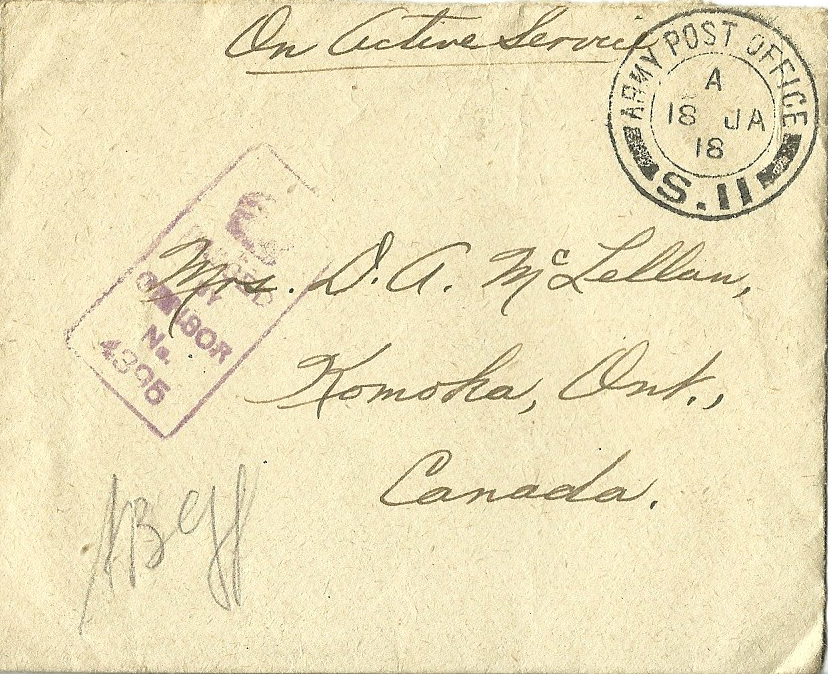 On Active Service
ARMY POST OFFICE
A
18 JA
18
S.11
PASSED
BY
CENSOR
No.
4395
Mrs. D. A. McLellan,
Komoka, Ont.,
Canada.